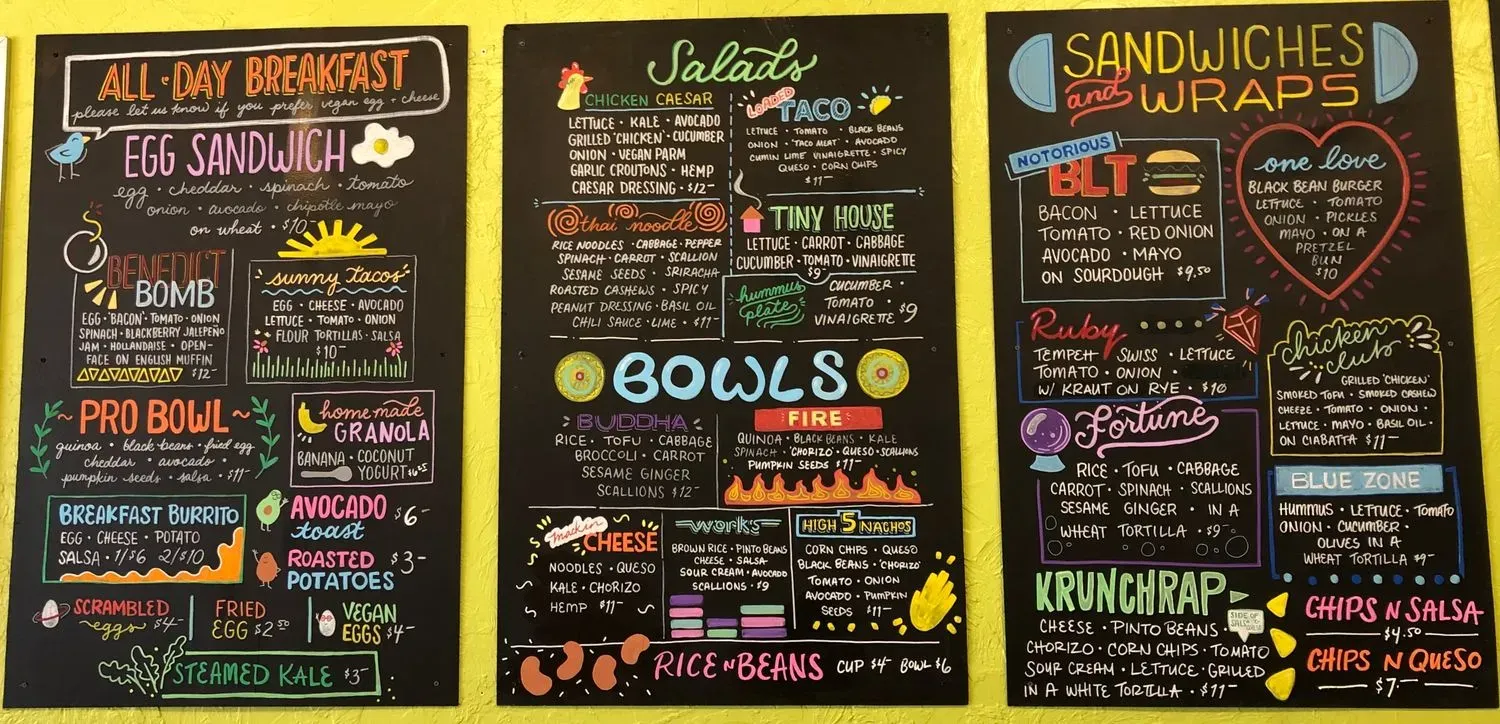 ALL • DAY BREAKFAST
please let us know if you prefer vegan egg + cheese
EGG SANDWICH
egg • cheddar • spinach • tomato
onion • avocado • chipotle mayo
on wheat • $10
BENEDICT
BOMB
EGG • 'BACON' • TOMATO • ONION
SPINACH • BLACKBERRY JALEPEÑO
JAM • HOLLANDAISE • OPEN-
FACE ON ENGLISH MUFFIN
$12-
sunny tacos
EGG • CHEESE • AVOCADO
LETTUCE • TOMATO • ONION
FLOUR TORTILLAS • SALSA
$10-
~ PRO BOWL ~
quinoa • black beans • fried egg
cheddar • avocado •
pumpkin seeds • salsa • $11-
homemade
GRANOLA
BANANA • COCONUT
YOGURT
BREAKFAST BURRITO
EGG • CHEESE • POTATO
SALSA • 1/$6 2/$10
AVOCADO $6-
toast
ROASTED $3-
POTATOES
SCRAMBLED
eggs $4-
FRIED
EGG $2 50
VEGAN
EGGS $4-
STEAMED KALE $3-
Salads
CHICKEN CAESAR
LETTUCE • KALE • AVOCADO
GRILLED 'CHICKEN' • CUCUMBER
ONION • VEGAN PARM
GARLIC CROUTONS • HEMP
CAESAR DRESSING • $12-
LOADED
TACO
LETTUCE • TOMATO • BLACK BEANS
ONION • 'TACO MEAT' • AVOCADO
CUMIN LIME VINAIGRETTE • SPICY
QUESO • CORN CHIPS
$11-
thai noodle
RICE NOODLES • CABBAGE • PEPPER
SPINACH • CARROT • SCALLION
SESAME SEEDS • SRIRACHA
ROASTED CASHEWS • SPICY
PEANUT DRESSING • BASIL OIL
CHILI SAUCE • LIME • $11-
TINY HOUSE
LETTUCE • CARROT • CABBAGE
CUCUMBER • TOMATO • VINAIGRETTE
$9-
hummus
plate
CUCUMBER •
TOMATO •
VINAIGRETTE $9
BOWLS
BUDDHA
RICE • TOFU • CABBAGE
BROCCOLI • CARROT
SESAME GINGER
SCALLIONS $12-
FIRE
QUINOA • BLACK BEANS • KALE
SPINACH • 'CHORIZO' • QUESO • SCALLIONS
PUMPKIN SEEDS $11-
mackin
CHEESE
NOODLES • QUESO
KALE • CHORIZO
HEMP $11-
works
BROWN RICE • PINTO BEANS
CHEESE • SALSA
SOUR CREAM • AVOCADO
SCALLIONS • $9
HIGH 5 NACHOS
CORN CHIPS • QUESO
BLACK BEANS • 'CHORIZO'
TOMATO • ONION
AVOCADO • PUMPKIN
SEEDS • $11-
RICE N BEANS CUP $4- BOWL $6
SANDWICHES
and WRAPS
NOTORIOUS
BLT
BACON • LETTUCE
TOMATO • RED ONION
AVOCADO • MAYO
ON SOURDOUGH $9.50
one love
BLACK BEAN BURGER
LETTUCE • TOMATO
ONION • PICKLES
MAYO • ON A
PRETZEL
BUN
$10
Ruby
TEMPEH SWISS • LETTUCE
TOMATO • ONION •
W/ KRAUT ON RYE • $10
chicken
club
GRILLED 'CHICKEN'
SMOKED TOFU • SMOKED CASHEW
CHEEZE • TOMATO • ONION •
LETTUCE • MAYO • BASIL OIL •
ON CIABATTA $11-
Fortune
RICE • TOFU • CABBAGE
CARROT • SPINACH • SCALLIONS
SESAME GINGER • IN A
WHEAT TORTILLA • $9-
BLUE ZONE
HUMMUS • LETTUCE • TOMATO
ONION • CUCUMBER •
OLIVES IN A
WHEAT TORTILLA $9-
KRUNCHRAP
SIDE OF
CHEESE • PINTO BEANS
CHORIZO • CORN CHIPS • TOMATO
SOUR CREAM • LETTUCE • GRILLED
IN A WHITE TORTILLA • $11-
CHIPS N SALSA
$4.50
CHIPS N QUESO
$7.-